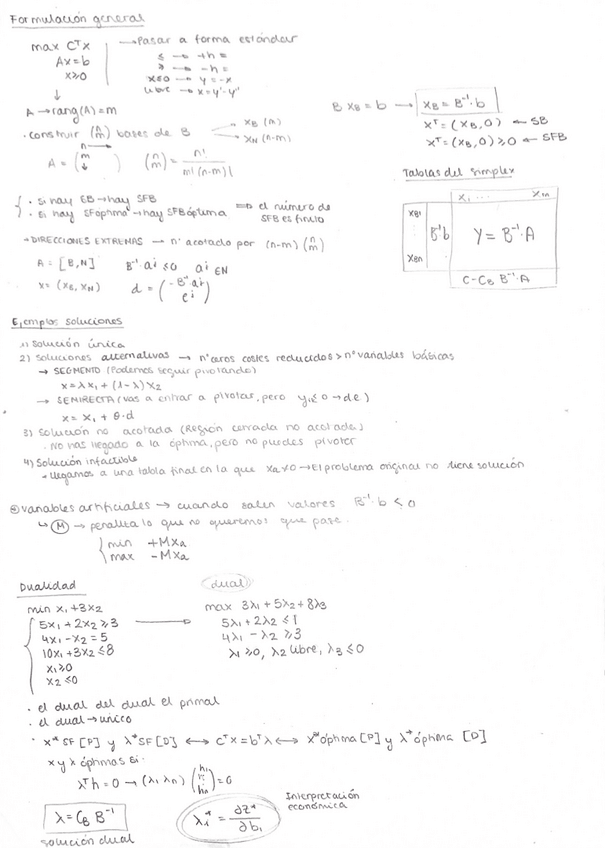 Formulación general
max CᵀX → Pasar a forma estándar
AX=b
X≥0
≤ → +h =
≥ → -h =
x≤0 → y=-x
libre → x=y'-y''
A → rang(A)=m
· construir (n m) bases de B
XB (m)
XN (n-m)
n
A = (m )
(n m) = n! / m!(n-m)!
B XB = b → XB = B⁻¹·b
xᵀ = (XB, 0) ← SB
xᵀ = (XB, 0) ≥ 0 ← SFB
· Si hay SB → hay SFB
· Si hay SF óptima → hay SFB óptima
⇒ el número de SFB es finito
→ DIRECCIONES EXTREMAS → nº acotado por (n-m) (n m)
A = [B,N] B⁻¹ aj ≤ 0 aj ∈ N
x = (XB, XN) d = (-B⁻¹aj ej)
Tablas del simplex
X1 ... Xm
XB1
:
XBn
B⁻¹b
Y = B⁻¹·A
C-CB B⁻¹·A
Ejemplos soluciones
1) Solución única
2) Soluciones alternativas → nº ceros costes reducidos > nº variables básicas
→ SEGMENTO (Podemos seguir pivotando)
x=λx1 + (1-λ)x2
→ SEMIRECTA (vas a entrar a pivotar, pero yi≤0 → de)
x = x1 + θ·d
3) Solución no acotada (Región cerrada no acotada)
· No has llegado a la óptima, pero no puedes pivotar
4) Solución infactible
· Llegamos a una tabla final en la que Xa≠0 → El problema original no tiene solución
variables artificiales → cuando salen valores B⁻¹·b ≤ 0
↳ M → penaliza lo que no queremos que pase.
min +MXa
max -MXa
Dualidad
min x1+3x2
5x1+2x2≥3
4x1-x2=5
10x1+3x2≤8
x1≥0
x2≤0
dual
max 3λ1+5λ2+8λ3
5λ1+2λ2≤1
4λ1-λ2≥3
λ1≥0, λ2 libre, λ3≤0
· el dual del dual el primal
· el dual → único
· x* SF [P] y λ* SF [D] ↔ Cᵀx=bᵀλ ↔ x* óptima [P] y λ* óptima [D]
x y λ óptimas si:
λᵀh=0 → (λ1 λn) (h1 : hn) = 0
λ = CB B⁻¹
solución dual
λi* = ∂Z* / ∂bi
Interpretación económica